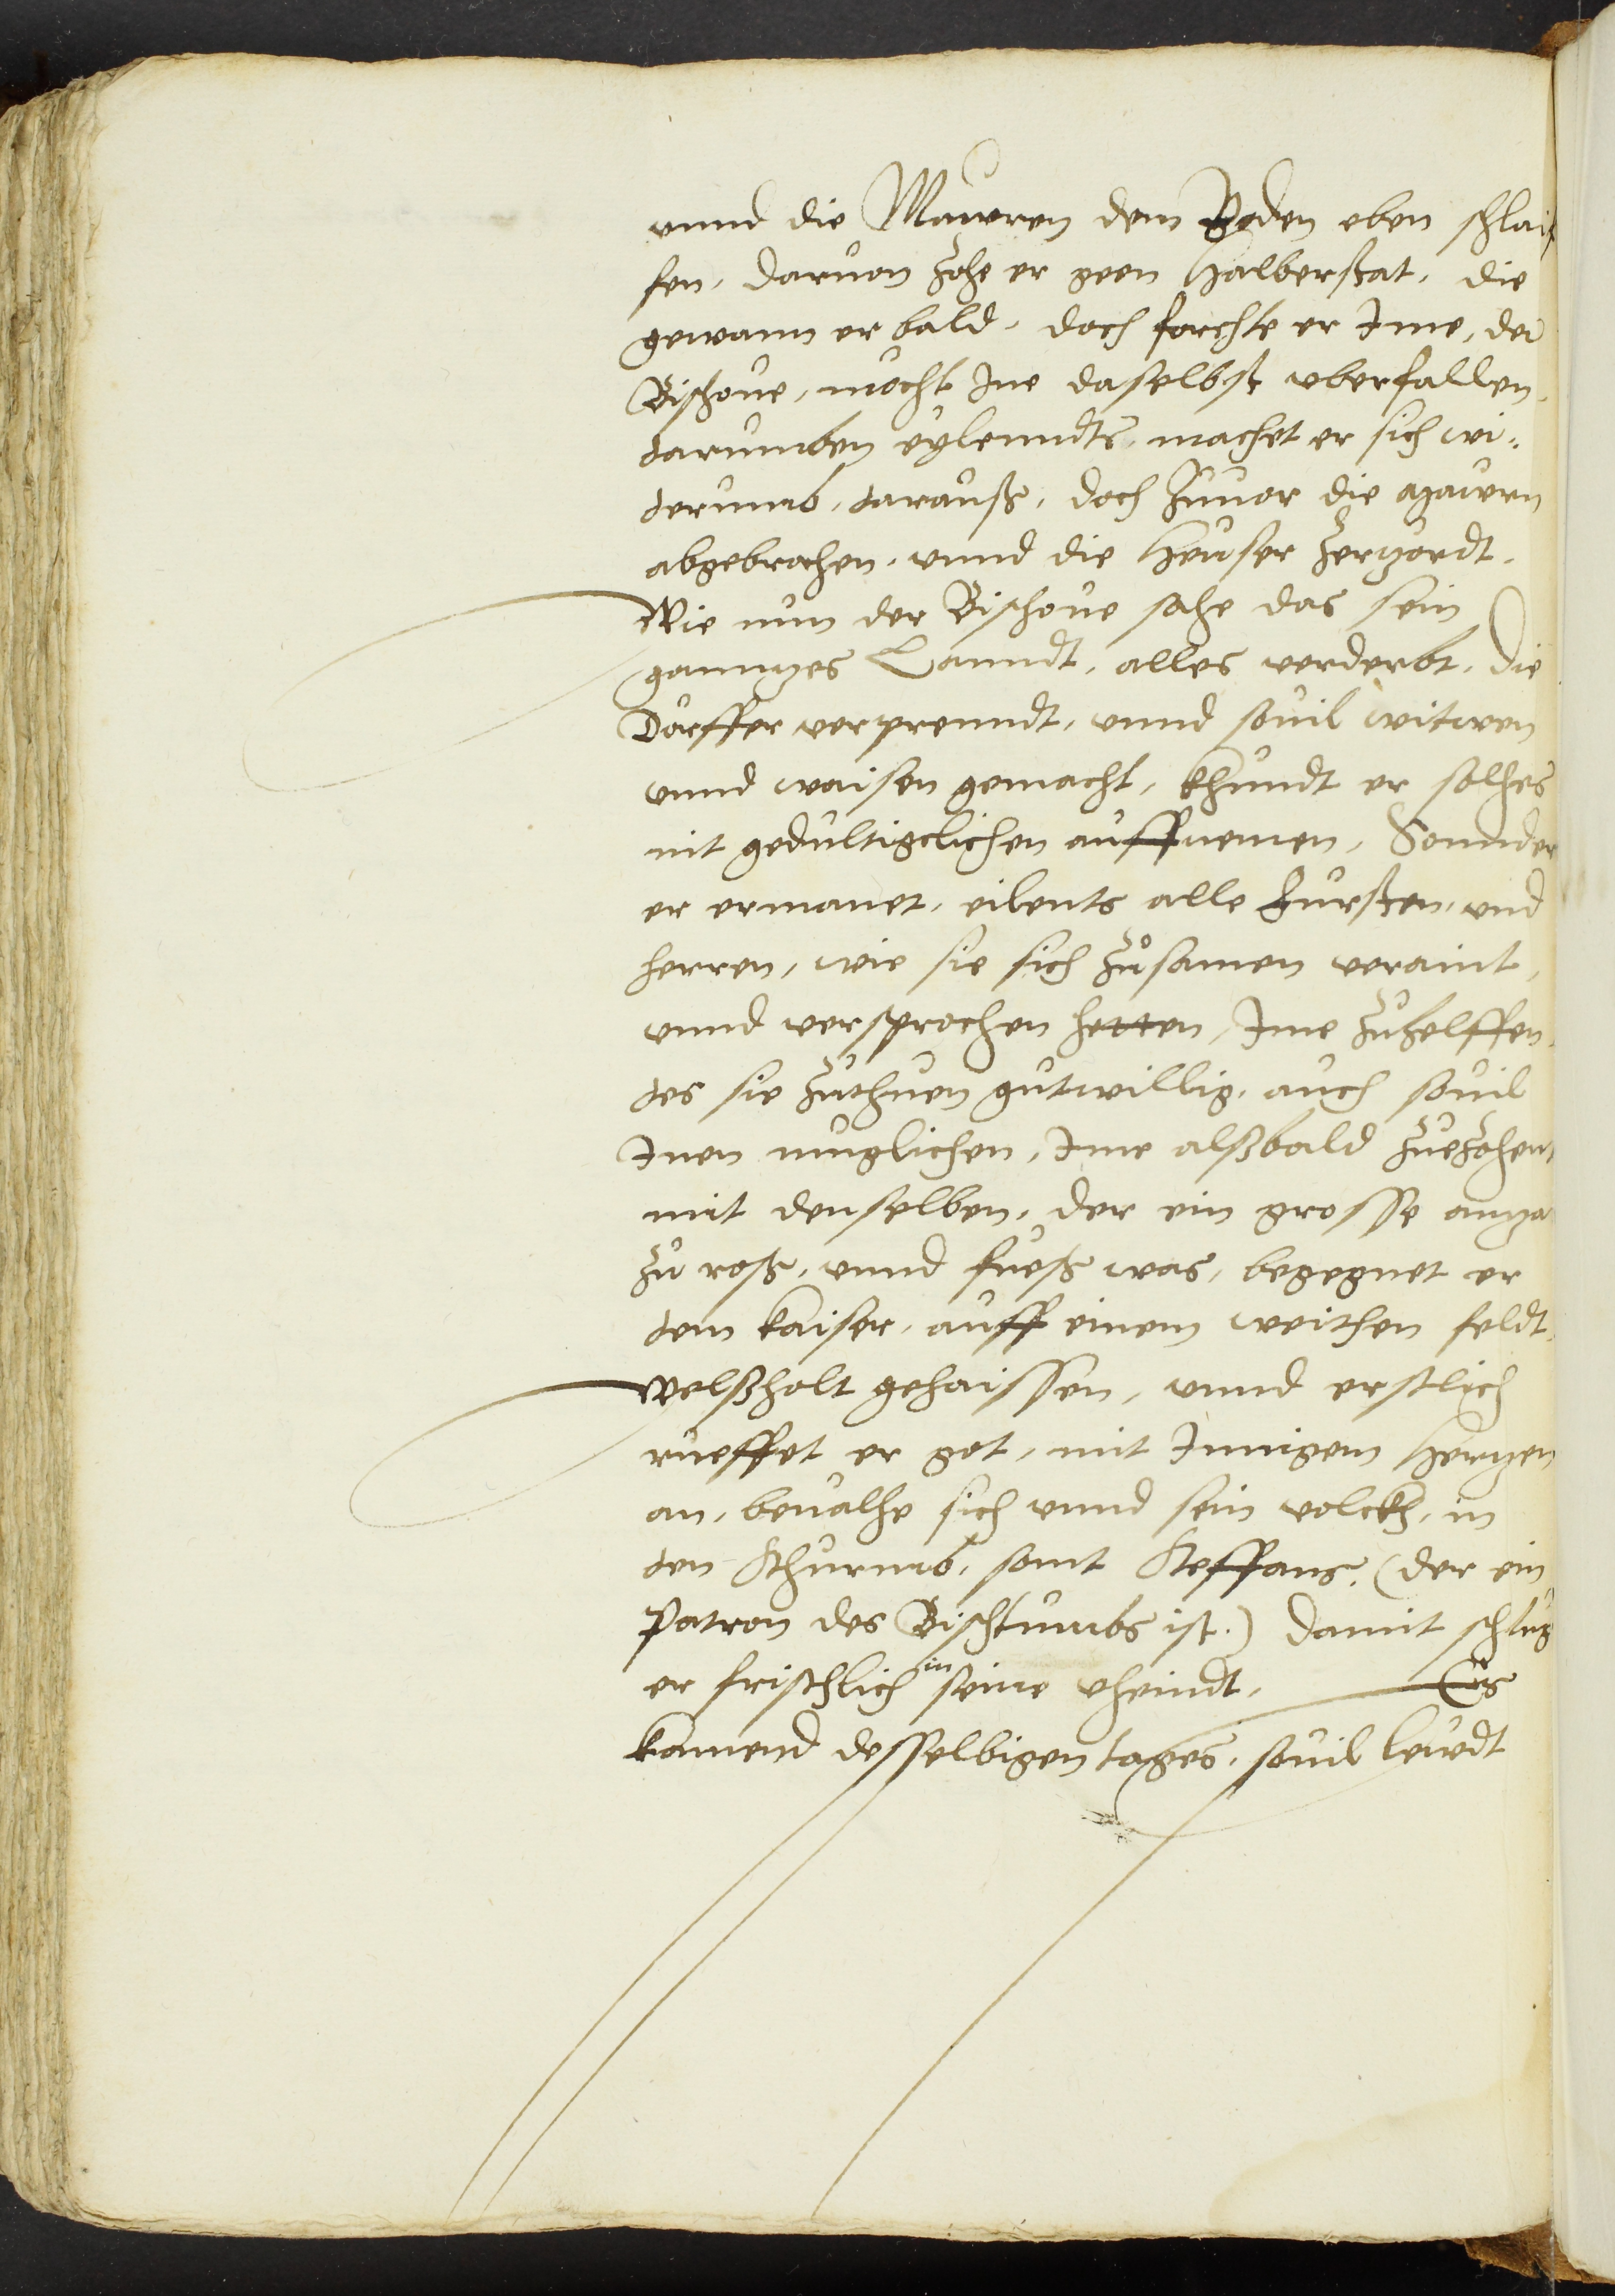 vnnd die Mauren dem Boden eben schlaif
fen, daruon zohe er geen Halberstat, die
gewann er bald, doch forchte er Ime, der
Bischoue, mocht Ine daselbst vberfallen,
darumben eylenndts, machet er sich wi-
derumb, darauß, doch zuuor die Mauren
abgebrochen, vnnd die Heuser zerstordt.
Wie nun der Bischoue sahe das sein
ganntzes Lanndt, alles verderbt, die
Dorffer verprenndt, vnnd souil witwen
vnnd waisen gemacht, khundt er solhes
nit gedultigclichen auffnemen, Sonnder
er ermanet, eilents alle Fursten, vnd
herren, wie sie sich zůsamen veraint,
vnnd versprochen hetten, Ime zuhelffen,
des sie zuthuen gutwillig, auch souil
Inen muglichen, Ime alßbald zuezohen,
mit denselben, der ein grosse antza
zu roß, vnnd fueß was, begegnet er
dem kaiser, auff einem weithen feldt,
welßholt gehaissen, vnnd erstlich
rueffet er got, mit Innigem Hertzen
an, beualhe sich vnnd sein volckh, in
den Schurmb, sant Steffans, (der ein
Patron des Bischtumbs ist.) Damit schlug
er frischlich in seine vheindt, Es
kamend desselbigen tages, souil leudt